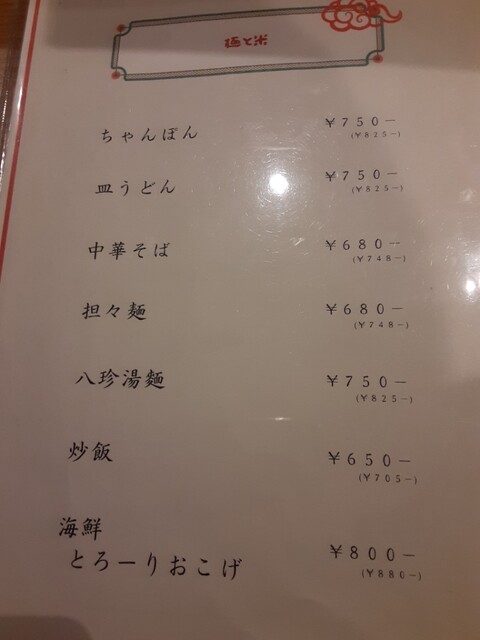 米と麺
ちゃんぽん ¥750－
(¥825－)
皿うどん ¥750－
(¥825－)
中華そば ¥680－
(¥748－)
担々麺 ¥680－
(¥748－)
八珍湯麺 ¥750－
(¥825－)
炒飯 ¥650－
(¥705－)
海鮮
とろーりおこげ ¥800－
(¥880－)